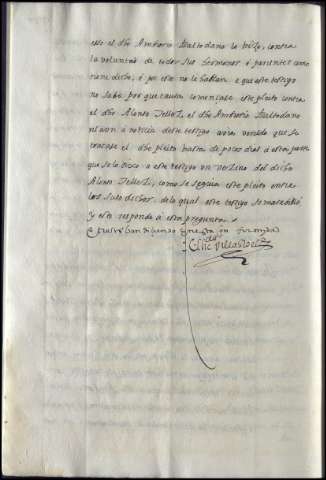 esto el dho Antonio Baltodano lo hizo, contra
la voluntad de todos sus hermanos ó parientes como
tiene dicho, é por esso no le hablan: e que este testigo
no sabe por que causa comenzase este pleito contra
el dho Alonso Tellez, el dho Antonio Baltodano
ni aun a noticia deste testigo avia venido que se
tratase el dho pleito hasta de pocos dias á esta parte
que se lo dixo a este testigo un vezino del dicho
Alonso Tellez, como se seguia este pleito entre
los suso dichos, de lo qual este testigo se maravilló
y esto responde á esta pregunta.